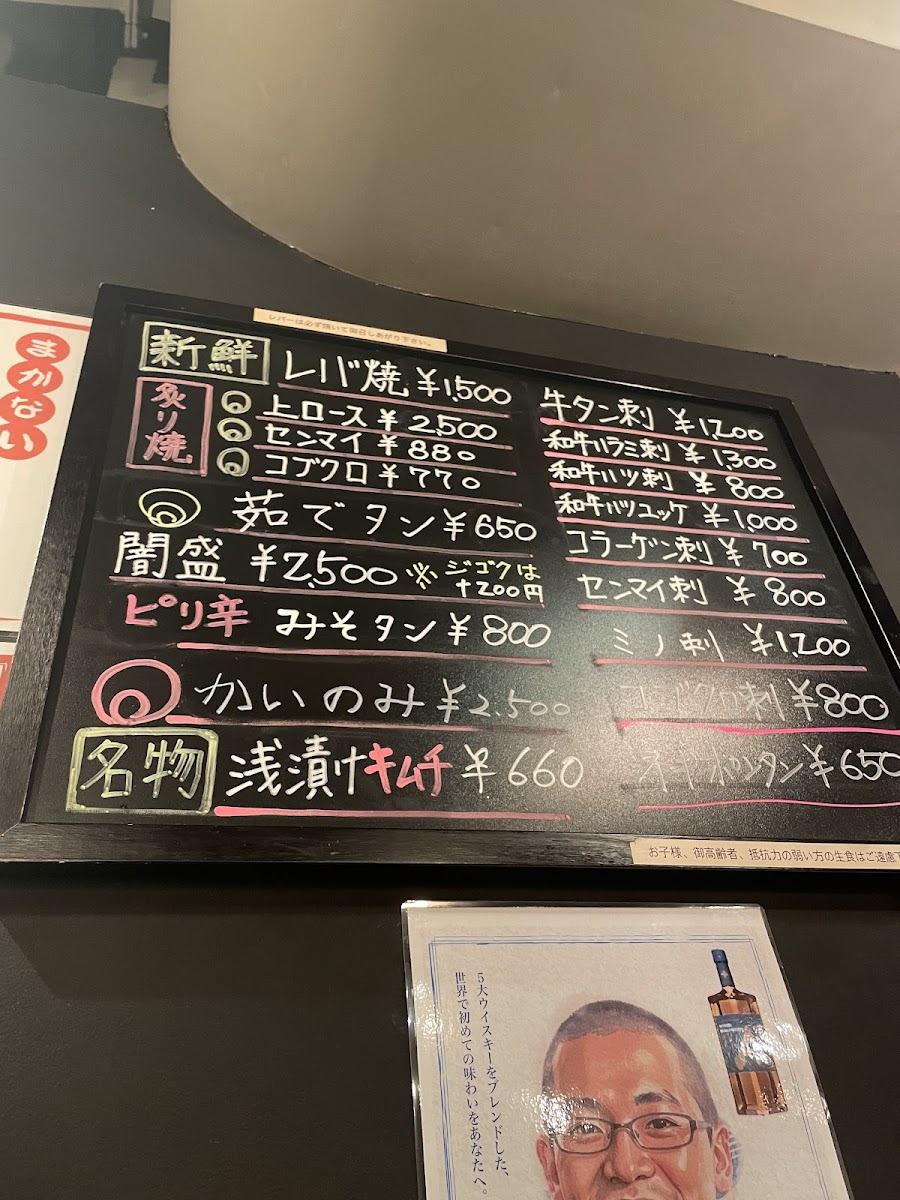 レバーは必ず焼いて御召しあがり下さい。
まかない
新鮮 レバ焼 ¥1,500
炙り焼
上ロース ¥2,500
センマイ ¥880
コブクロ ¥770
茹でタン ¥650
闇盛 ¥2,500 ※ジゴクは
+200円
ピリ辛 みそタン ¥800
かいのみ ¥2,500
名物 浅漬けキムチ ¥660
牛タン刺 ¥1,200
和牛ハラミ刺 ¥1,300
和牛ハツ刺 ¥800
和牛ハツユッケ ¥1,000
コラーゲン刺 ¥700
センマイ刺 ¥800
ミノ刺 ¥1,200
コブクロ刺 ¥800
¥650
お子様、御高齢者、抵抗力の弱い方の生食はご遠慮
5大ウイスキーをブレンドした、
世界で初めての味わいをあなたへ。